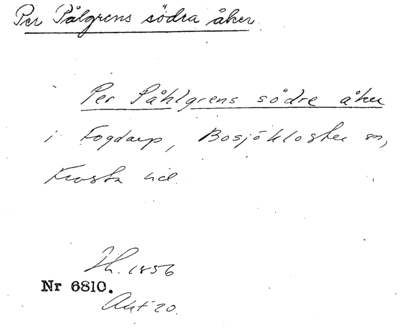 Per Pålgrens södra åker
Per Påhlgrens södre åker
i Fogdarp, Bosjökloster sn,
Frosta hd.
Sh. 1856
Nr 6810.
Akt 20.